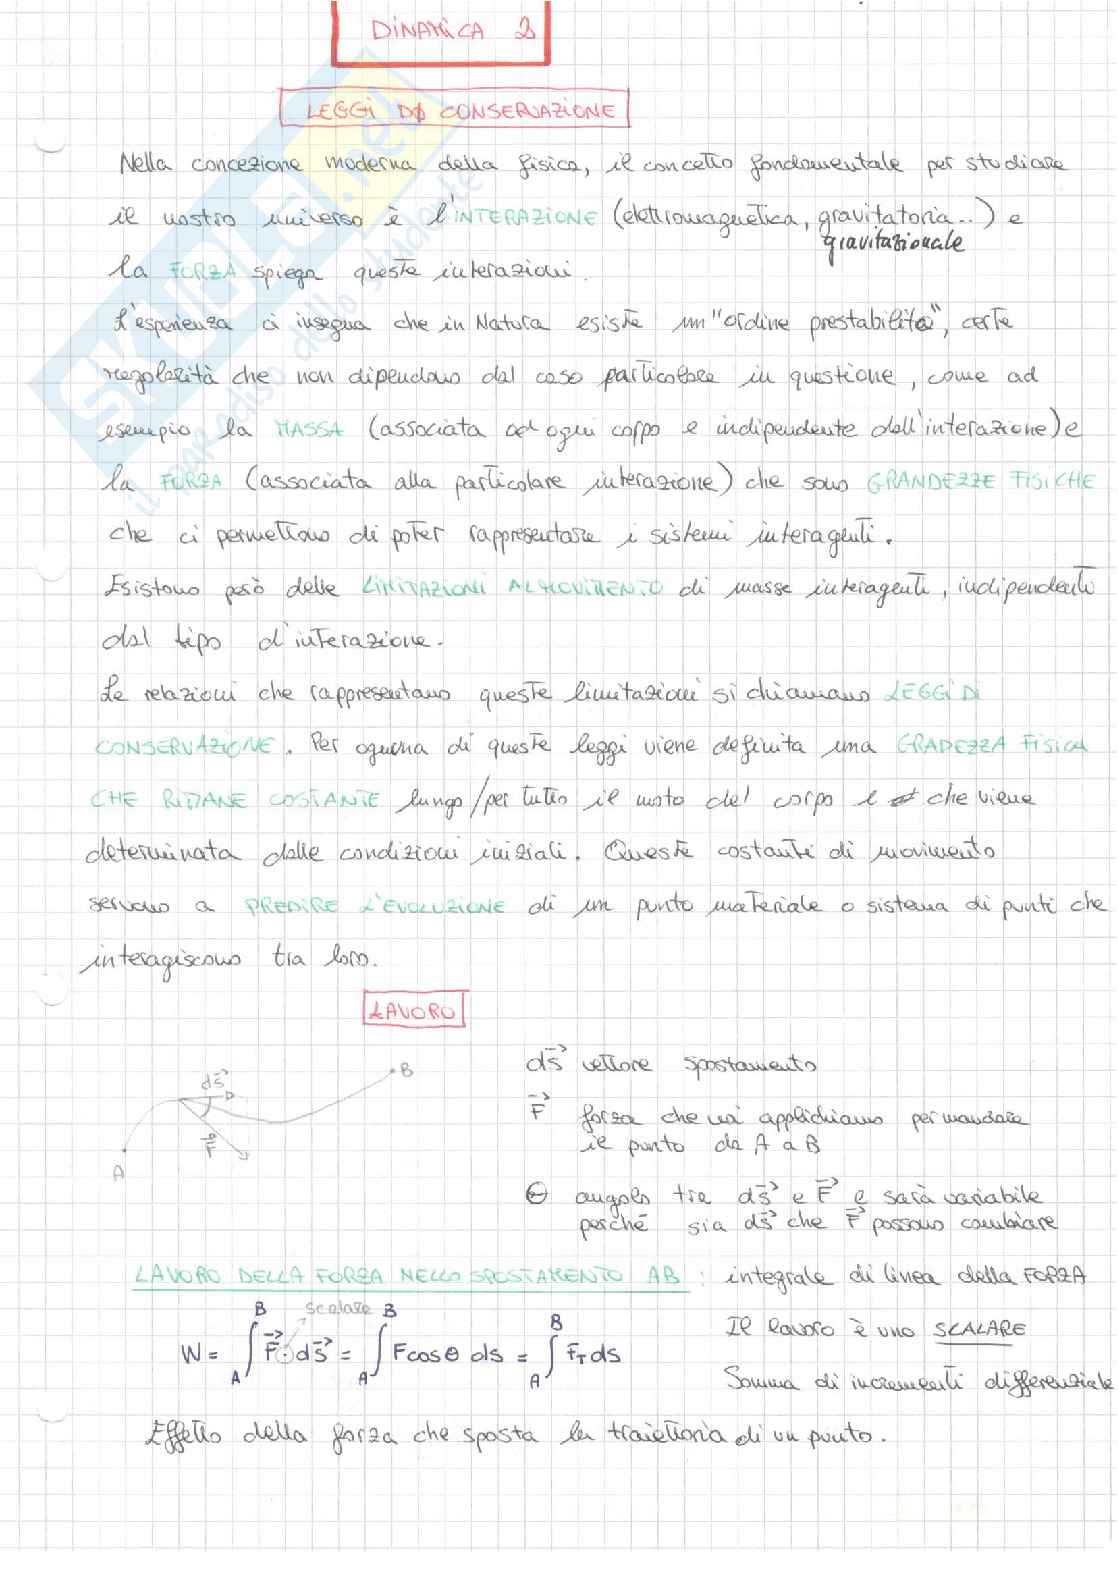 DINAMICA 2
LEGGI DI CONSERVAZIONE
Nella concezione moderna della fisica, il concetto fondamentale per studiare
il nostro universo è l'INTERAZIONE (elettromagnetica, gravitatoria..) e
gravitazionale
la FORZA spiega queste interazioni.
L'esperienza ci insegna che in Natura esiste un "ordine prestabilito", certe
regolarità che non dipendono dal caso particolare in questione, come ad
esempio la MASSA (associata ad ogni corpo e indipendente dall'interazione) e
la FORZA (associata alla particolare interazione) che sono GRANDEZZE FISICHE
che ci permettono di poter rappresentare i sistemi interagenti.
Esistono però delle LIMITAZIONI AL MOVIMENTO di masse interagenti, indipendenti
dal tipo d'interazione.
Le relazioni che rappresentano queste limitazioni si chiamano LEGGI DI
CONSERVAZIONE. Per ognuna di queste leggi viene definita una GRADEZZA FISICA
CHE RIMANE COSTANTE lungo/per tutto il moto del corpo e che viene
determinata dalle condizioni iniziali. Queste costanti di movimento
servono a PREDIRE L'EVOLUZIONE di un punto materiale o sistema di punti che
interagiscono tra loro.
LAVORO
ds⃗ vettore spostamento
F⃗ forza che noi applichiamo per mandare
il punto da A a B
θ angolo tra ds⃗ e F⃗ e sarà variabile
perché sia ds⃗ che F⃗ possono cambiare
A
ds⃗
F⃗
B
LAVORO DELLA FORZA NELLO SPOSTAMENTO AB : integrale di linea della FORZA
scalare
W = ∫_A^B F⃗ · ds⃗ = ∫_A^B F cos θ ds = ∫_A^B F_T ds
Il lavoro è uno SCALARE
Somma di incrementi differenziale
Effetto della forza che sposta la traiettoria di un punto.
SKUOLA.net
il paradiso dello studente